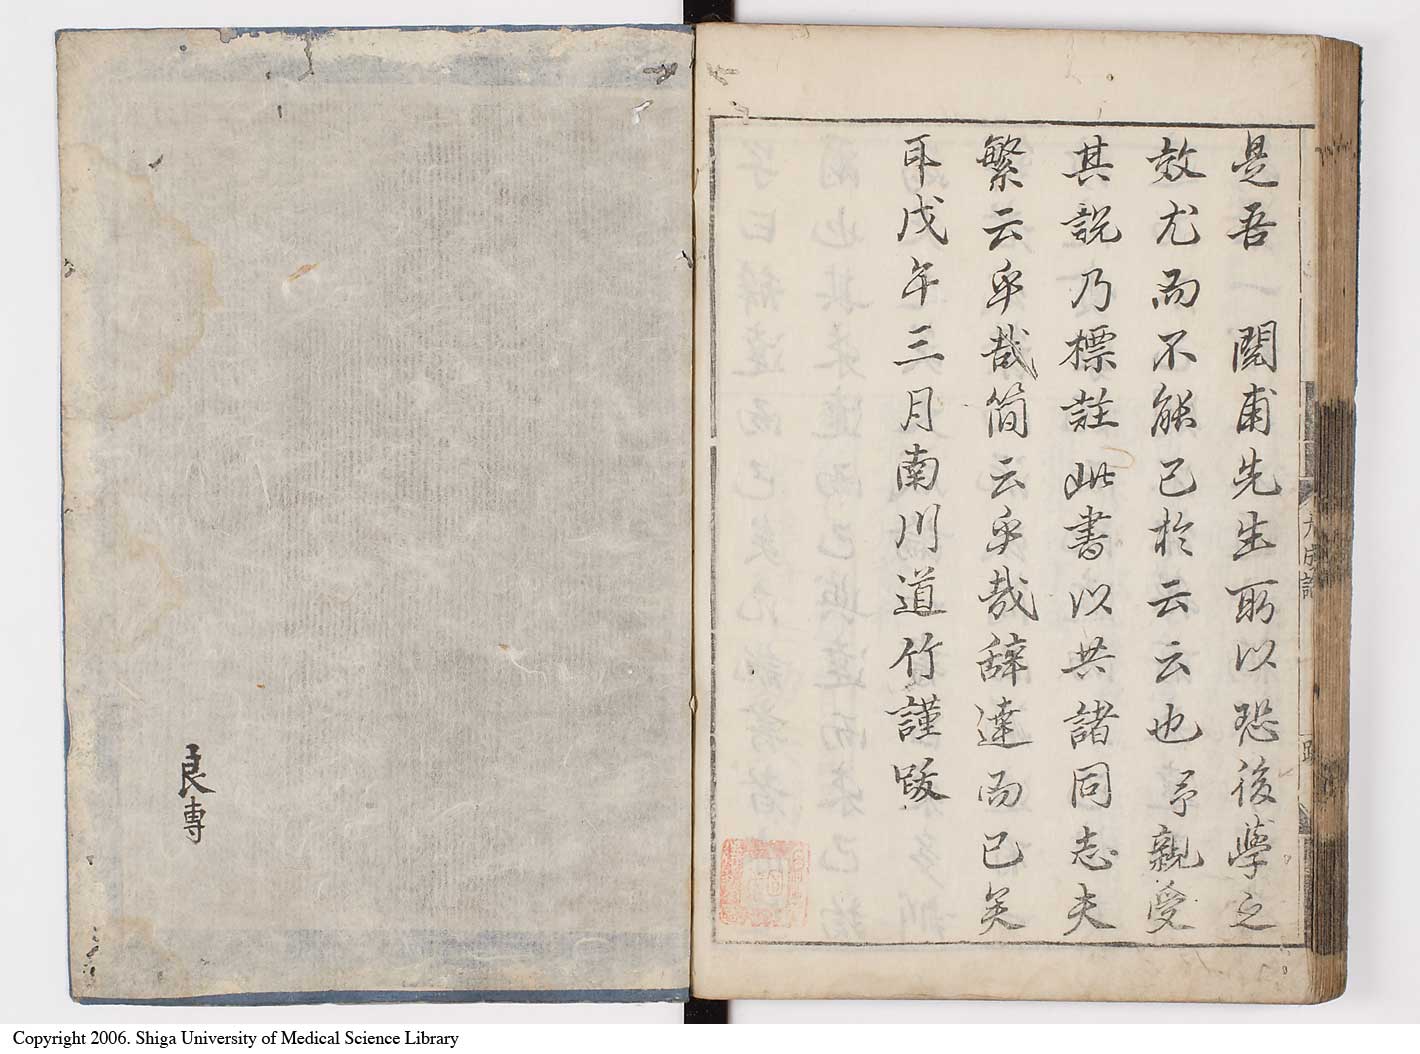 是吾 閱甫先生所以恐後學之
效尤而不能已於云云也予親受
其說乃標註此書以共諸同志夫
繁云乎哉簡云乎哉辭達而已矣
耳戊午三月南川道竹謹跋
大成論
跋
良專
Copyright 2006. Shiga University of Medical Science Library